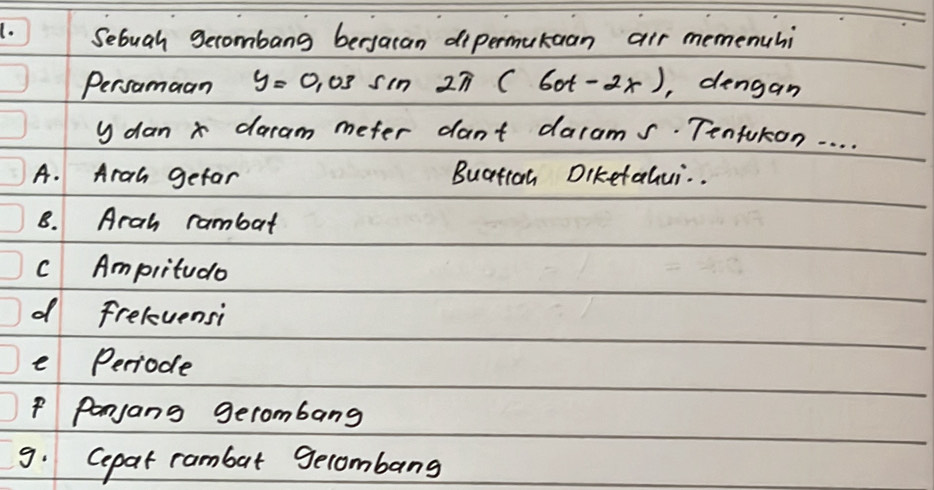 1. Sebuah gelombang berjalan dipermukaan air memenuhi
Persamaan y = 0,03 sin 2π ( 60t - 2x ), dengan
y dan x dalam meter dan t dalam s. Tentukan ....
A. Arah getar Buatlah Diketahui..
B. Arah rambat
C Amplitudo
d Frekuensi
e Periode
F Panjang gelombang
g. Cepat rambat gelombang